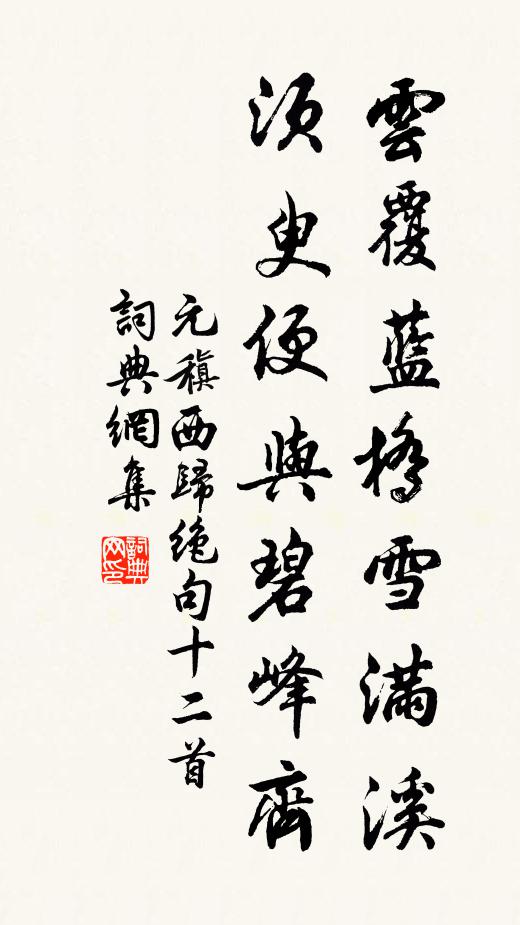 雲覆藍橋雪滿溪
須臾便與碧峰齊
元稹西歸绝句十二首
詞典網集
詞典网印